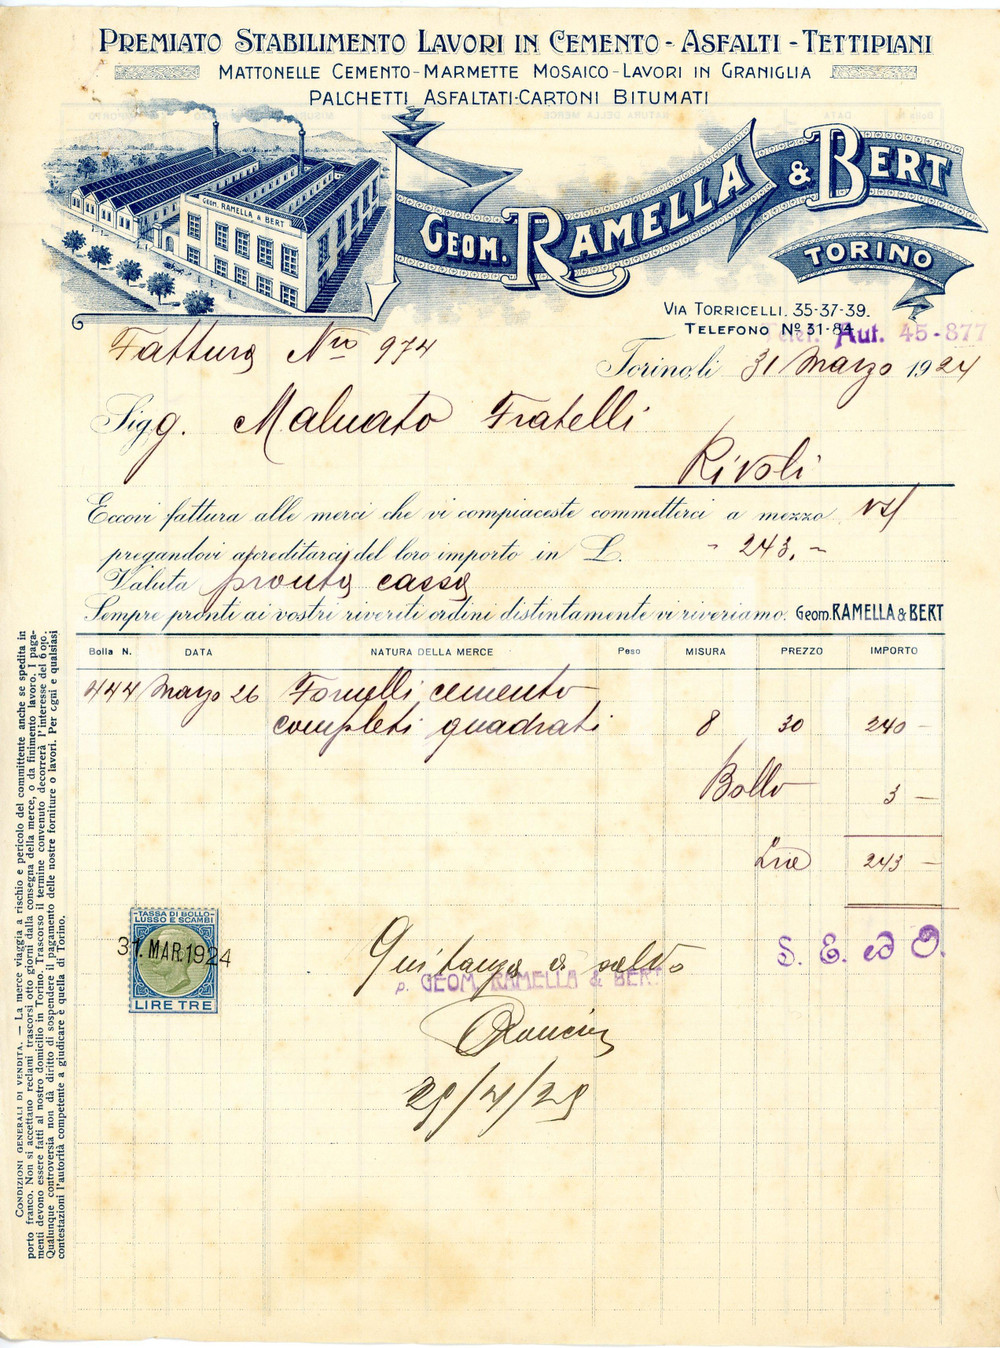 PREMIATO STABILIMENTO LAVORI IN CEMENTO - ASFALTI - TETTIPIANI
MATTONELLE CEMENTO - MARMETTE MOSAICO - LAVORI IN GRANIGLIA
PALCHETTI ASFALTATI - CARTONI BITUMATI
GEOM. RAMELLA & BERT
GEOM. RAMELLA & BERT
TORINO
VIA TORRICELLI. 35-37-39.
TELEFONO Nº 31-84
Telef. Aut. 45-877
Fattura Nro 974
Torino, li 31 Marzo 1924
Sigg. Malvato Fratelli
Rivoli
Eccovi fattura alle merci che vi compiaceste commetterci a mezzo
pregandovi accreditarci del loro importo in L. - 243,-
Valuta pronta cassa
Sempre pronti ai vostri riveriti ordini distintamente vi riveriamo. Geom. RAMELLA & BERT
Bolla N. DATA NATURA DELLA MERCE Peso MISURA PREZZO IMPORTO
444 Marzo 26 Fornelli cemento
completi quadrati 8 30 240 -
Bollo 3 -
Lire 243 -
TASSA DI BOLLO
LUSSO E SCAMBI
31. MAR. 1924
LIRE TRE
S. E. ed O.
Quitanza a saldo
p. GEOM. RAMELLA & BERT
CONDIZIONI GENERALI DI VENDITA. — La merce viaggia a rischio e pericolo del committente anche se spedita in
porto franco. Non si accettano reclami trascorsi otto giorni dalla consegna della merce, o da finimento lavoro. I paga-
menti devono essere fatti al nostro domicilio in Torino. Trascorso il termine convenuto decorrerà l'interesse del 6 o/o.
Qualunque controversia non dà diritto di sospendere il pagamento delle nostre forniture o lavori. Per ogni e qualsiasi
contestazioni l'autorità competente a giudicare è quella di Torino.